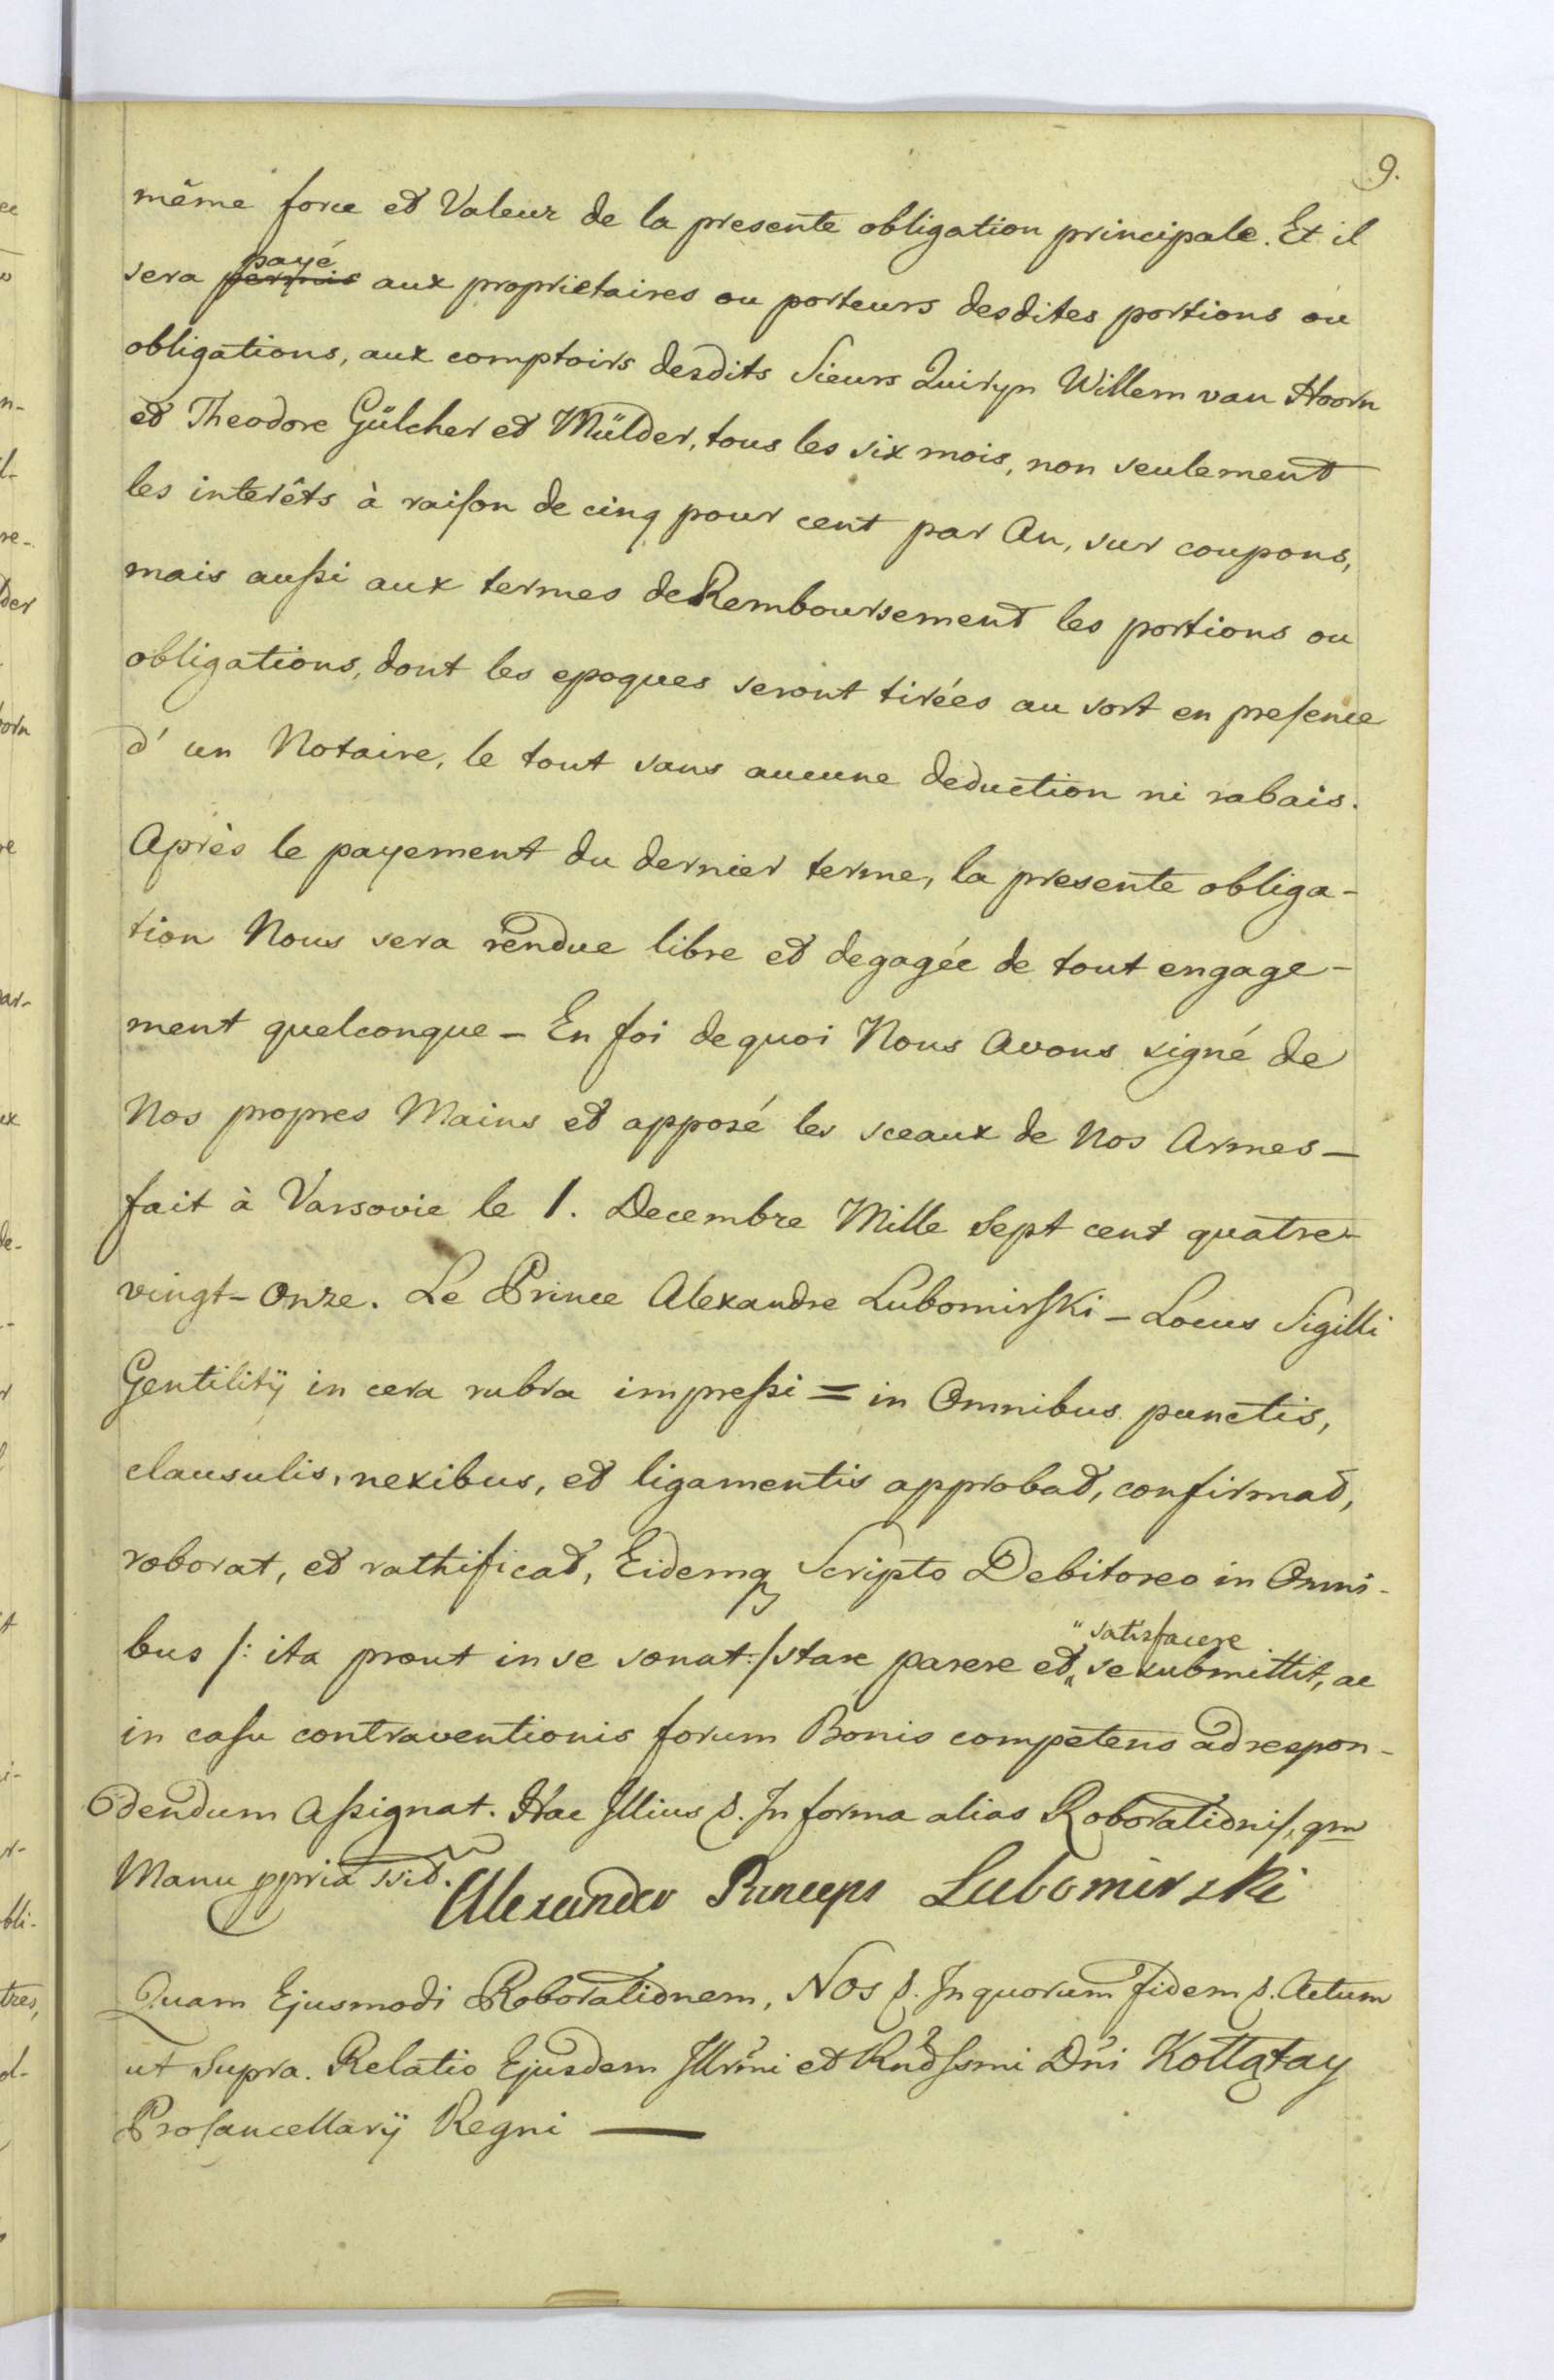 9.
même force et Valeur de la presente obligation principale. Et il
sera payé aux proprietaires ou porteurs desdites portions ou
obligations, aux comptoirs desdits Sieurs Quiryn Willem van Hoorn
et Theodore Gülcher et Mülder, tous les six mois, non seulement
les interêts à raison de cinq pour cent par An, sur coupons,
mais aussi aux termes de Remboursement les portions ou
obligations, dont les epoques seront tirées au sort en presence
d'un Notaire, le tout sans aucune deduction ni rabais.
Après le payement du dernier terme, la presente obliga-
tion Nous sera rendue libre et degagée de tout engage-
ment quelconque - En foi de quoi Nous Avons signé de
Nos propres Mains et apposé les sceaux de Nos Armes -
fait à Varsovie le 1. Decembre Mille Sept cent quatre-
vingt-Onze. Le Prince Alexandre Lubomirski - Locus Sigilli
Gentilitÿ in cera rubra impressi = in Omnibus punctis,
clausulis, nexibus, et ligamentis approbat, confirmat,
roborat, et rathificat, Eidemq Scripto Debitoreo in Omni-
bus /: ita prout in se sonat :/ stare parere et satisfacere se submittit, ac
in casu contraventionis forum Bonis competens ad respon-
dendum Assignat. Hac Illius &. In forma alias Roborationis, qm
Manu ppria ssit.
Alexander Princeps Lubomirski
Quam Ejusmodi Roborationem, Nos &. In quorum fidem &. Actum
ut Supra. Relatio Ejusdem Illrmi et Rndssmi Dni Kołłątay
ProCancellarÿ Regni —